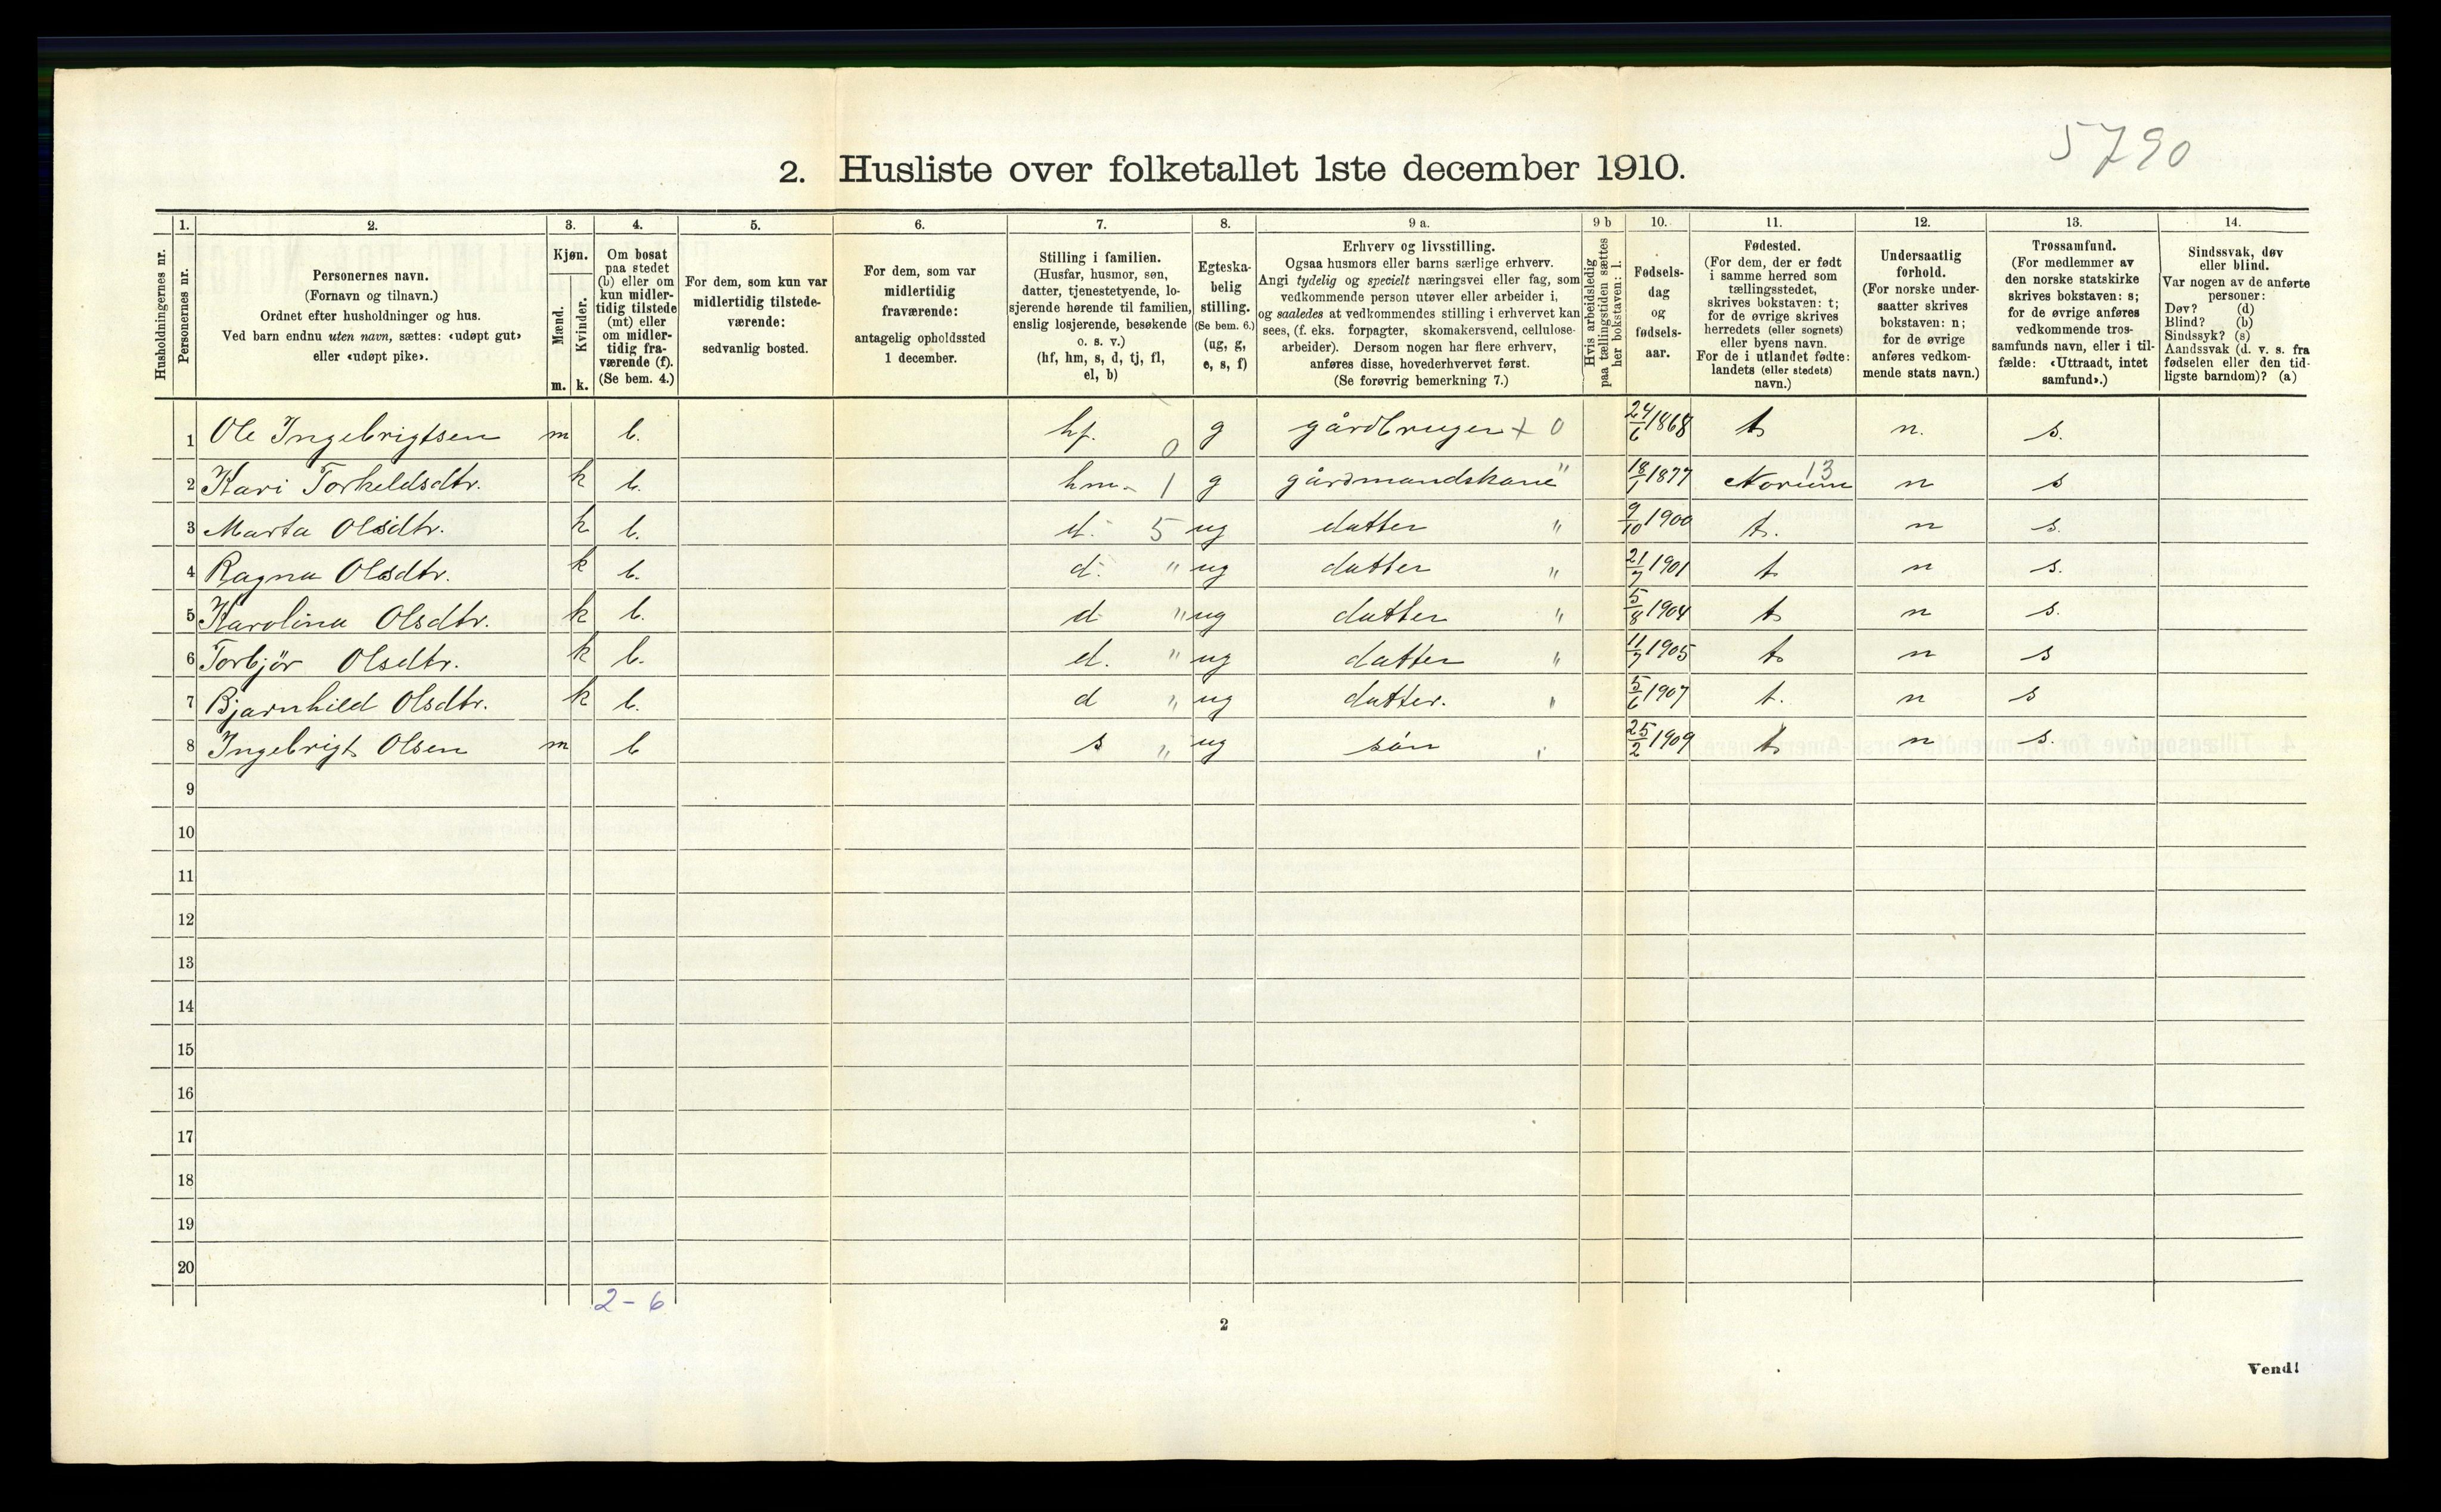 5790
2. Husliste over folketallet 1ste december 1910.
1. 2. 3. 4. 5. 6. 7. 8. 9 a. 9 b 10. 11. 12. 13. 14.
Husholdningernes nr.
Personernes nr.
Personernes navn.
(Fornavn og tilnavn.)
Ordnet efter husholdninger og hus.
Ved barn endnu uten navn, sættes: «udøpt gut»
eller «udøpt pike».
Kjøn.
Mænd.
Kvinder.
m. k.
Om bosat
paa stedet
(b) eller om
kun midler-
tidig tilstede
(mt) eller
om midler-
tidig fra-
værende (f).
(Se bem. 4.)
For dem, som kun var
midlertidig tilstede-
værende:
sedvanlig bosted.
For dem, som var
midlertidig
fraværende:
antagelig opholdssted
1 december.
Stilling i familien.
(Husfar, husmor, søn,
datter, tjenestetyende, lo-
sjerende hørende til familien,
enslig losjerende, besøkende
o. s. v.)
(hf, hm, s, d, tj, fl,
el, b)
Egteska-
belig
stilling.
(Se bem. 6.)
(ug, g,
e, s, f)
Erhverv og livsstilling.
Ogsaa husmors eller barns særlige erhverv.
Angi tydelig og specielt næringsvei eller fag, som
vedkommende person utøver eller arbeider i,
og saaledes at vedkommendes stilling i erhvervet kan
sees, (f. eks. forpagter, skomakersvend, cellulose-
arbeider). Dersom nogen har flere erhverv,
anføres disse, hovederhvervet først.
(Se forøvrig bemerkning 7.)
Hvis arbeidsledig
paa tællingstiden sættes
her bokstaven: l.
Fødsels-
dag
og
fødsels-
aar.
Fødested.
(For dem, der er født
i samme herred som
tællingsstedet,
skrives bokstaven: t;
for de øvrige skrives
herredets (eller sognets)
eller byens navn.
For de i utlandet fødte:
landets (eller stedets)
navn.)
Undersaatlig
forhold.
(For norske under-
saatter skrives
bokstaven: n;
for de øvrige
anføres vedkom-
mende stats navn.)
Trossamfund.
(For medlemmer av
den norske statskirke
skrives bokstaven: s;
for de øvrige anføres
vedkommende tros-
samfunds navn, eller i til-
fælde: «Uttraadt, intet
samfund».)
Sindssvak, døv
eller blind.
Var nogen av de anførte
personer:
Døv? (d)
Blind? (b)
Sindssyk? (s)
Aandssvak (d. v. s. fra
fødselen eller den tid-
ligste barndom)? (a)
1 Ole Ingebrigtsen m b. hf. 0 g gårdbruger + 0 24/6 1868 t n. s.
2 Kari Torkeldsdtr. k b. hm. 1 g gårdmandskone " 18/1 1877 13 n s
3 Marta Olsdtr. k b. d. 5 ug datter " 9/10 1900 t. n s.
4 Ragna Olsdtr. k b. d. " ug datter " 21/7 1901 t n s.
5 Karolina Olsdtr. k b. d " ug datter " 5/8 1904 t n s.
6 Torbjör Olsdtr. k b. d. " ug datter " 11/7 1905 t n s
7 Bjarnhild Olsdtr. k b. d " ug datter. " 5/6 1907 t. n s
8 Ingebrigt Olsen m b s " ug sön " 25/2 1909 t n s.
9
10
11
12
13
14
15
16
17
18
19
20
2-6
2
Vend!